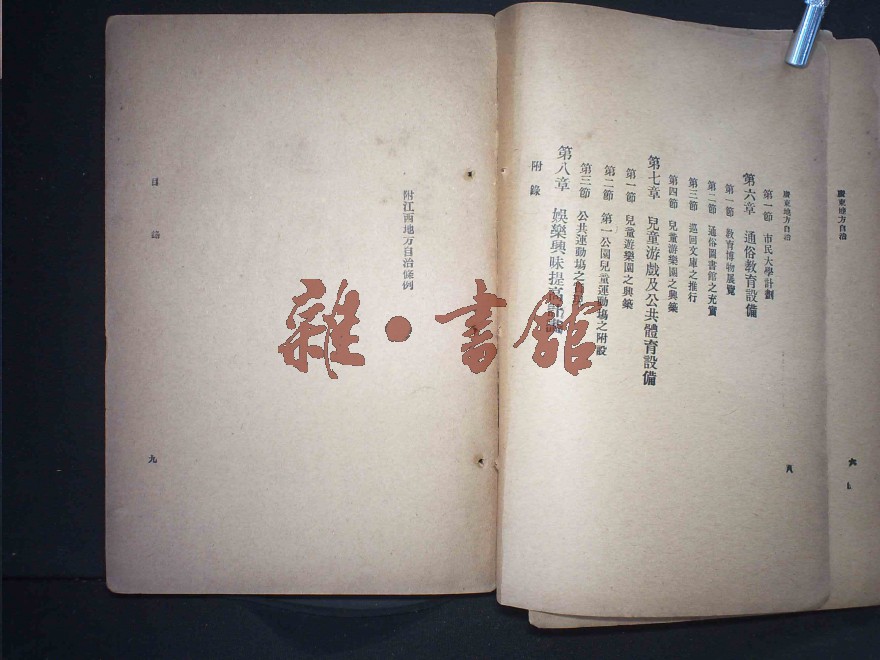 廣東地方自治
六
廣東地方自治
第一節 市民大學計劃
第六章 通俗教育設備
第一節 教育博物展覽
第二節 通俗圖書館之充實
第三節 巡回文庫之推行
第四節 兒童游樂園之興築
第七章 兒童游戲及公共體育設備
第一節 兒童遊樂園之興築
第二節 第一公園兒童運動塲之附設
第三節 公共運動塲之
第八章 娛樂興味提高
附錄
八
附江西地方自治條例
目錄
九
雜·書館